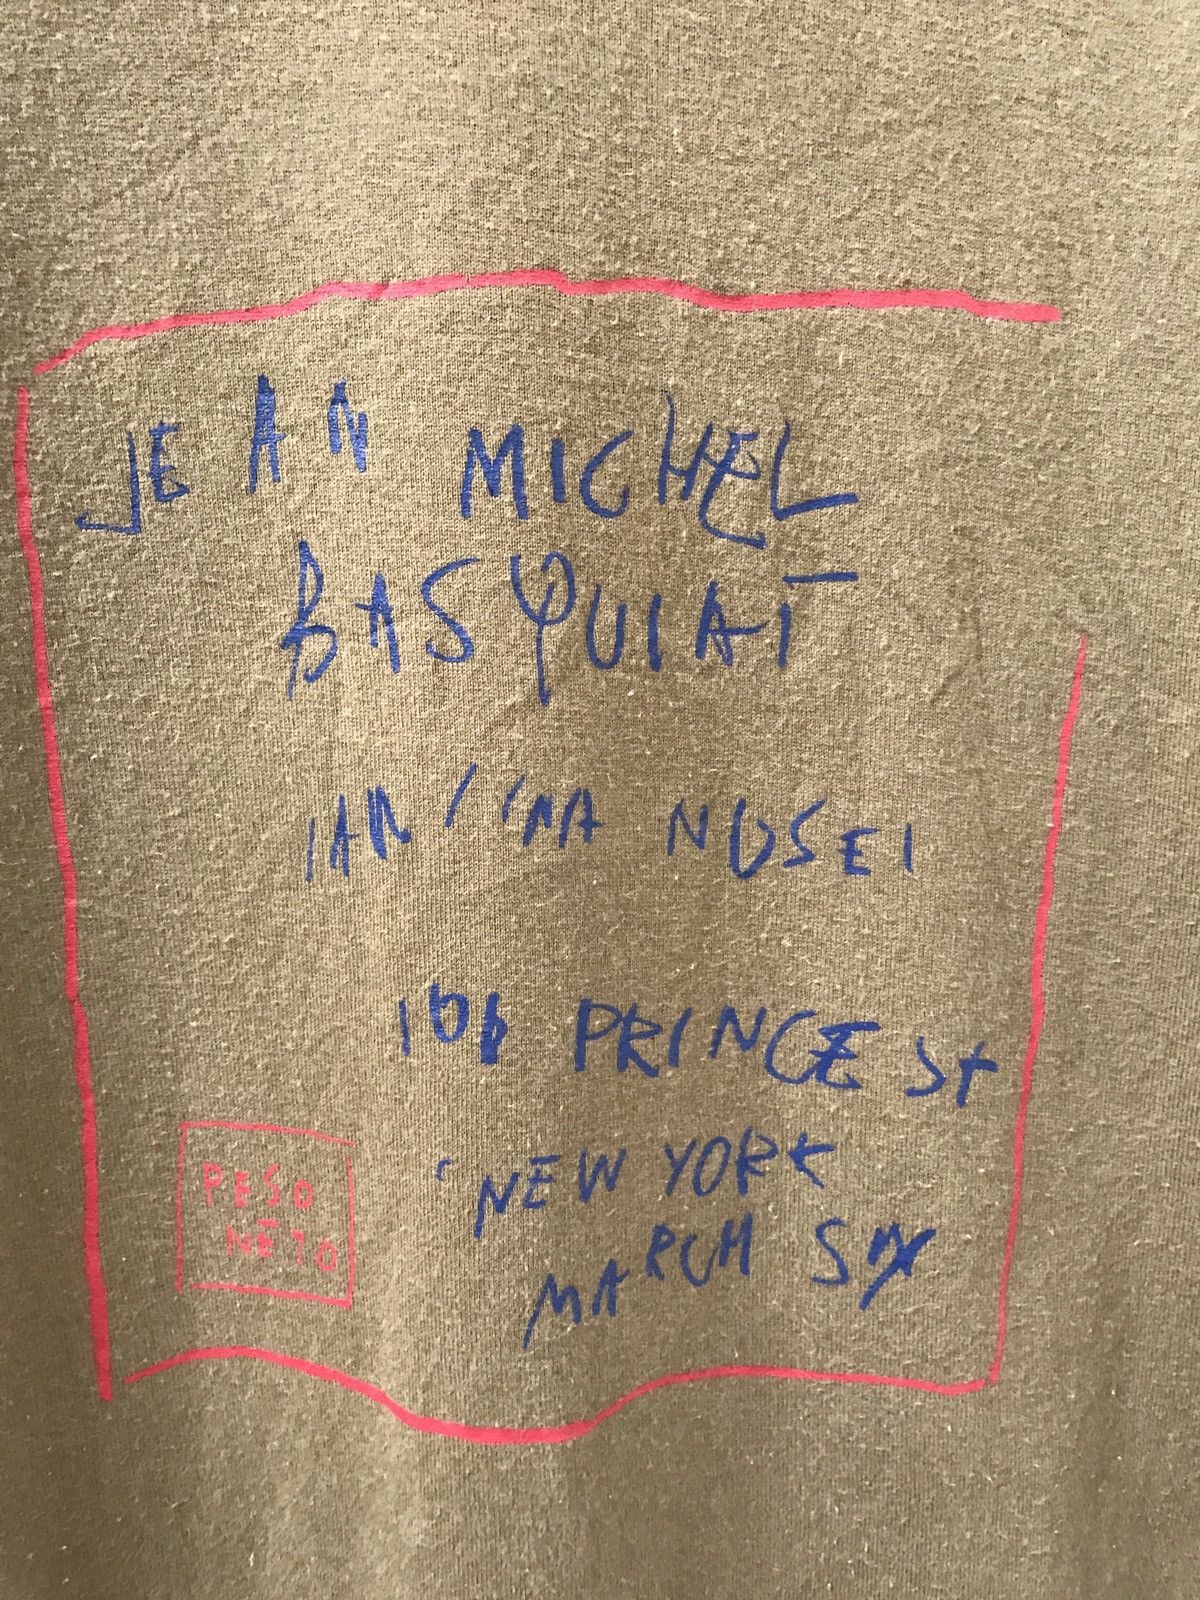 JEAN MICHEL
BASQUIAT
NOSEI
100 PRINCE ST
NEW YORK
MARCH SIX
PESO
NETO